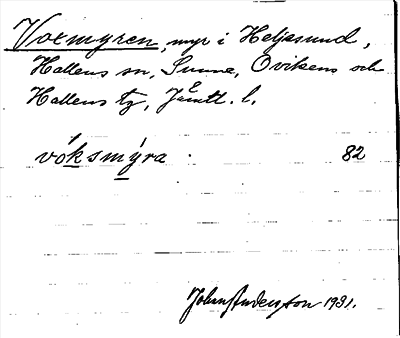 Voxmyren, myr i Heljesund,
Hallens sn, Sunne, Ovikens och
Hallens tg, Jämtl. l.
vóksmýra 82
John Anderson 1931.